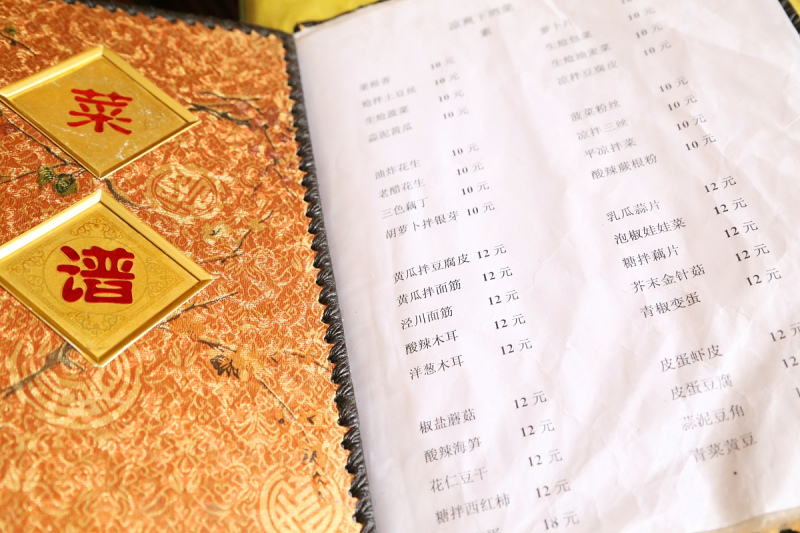 菜
谱
凉爽下酒菜
素
菜根香 10 元
炝拌土豆丝 10 元
生炝菠菜 10 元
蒜泥黄瓜 10 元
油炸花生 10 元
老醋花生 10 元
三色藕丁 10 元
胡萝卜拌银芽 10 元
黄瓜拌豆腐皮 12 元
黄瓜拌面筋 12 元
泾川面筋 12 元
酸辣木耳 12 元
洋葱木耳 12 元
椒盐蘑菇 12 元
酸辣海笋 12 元
花仁豆干 12 元
糖拌西红柿 12 元
18 元
萝卜片 10 元
生炝包菜 10 元
生炝油麦菜 10 元
凉拌豆腐皮 10 元
菠菜粉丝 10 元
凉拌三丝 10 元
平凉拌菜 10 元
酸辣蕨根粉 10 元
乳瓜蒜片 12 元
泡椒娃娃菜 12 元
糖拌藕片 12 元
芥末金针菇 12 元
青椒变蛋 12 元
皮蛋虾皮 12 元
皮蛋豆腐 12
蒜泥豆角
青菜黄豆